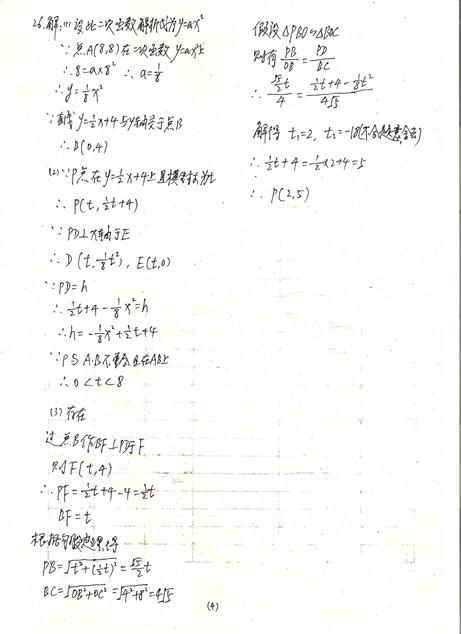 26.解:(1)设此二次函数解析式为y=ax²
∵点A(8,8)在二次函数y=ax²上
∴8=a×8² ∴a=1/8
∴y=1/8x²
∵直线y=1/2x+4与y轴交于点B
∴B(0,4)
(2)∵P点在y=1/2x+4上且横坐标为t
∴P(t,1/2t+4)
∵PD⊥x轴于E
∴D(t,1/8t²),E(t,0)
∵PD=h
∴1/2t+4-1/8x²=h
∴h=-1/8x²+1/2t+4
∵P与A.B不重合且在AB上
∴0<t<8
(3)存在
过点B作BF⊥PD于F
则F(t,4)
∴PF=1/2t+4-4=1/2t
BF=t
根据勾股定理得
PB=√t²+(1/2t)²=√5/2t
BC=√OB²+OC²=√4²+8²=4√5
假设△PBD∽△BOC
则有PB/OB=PD/BC
∴√5/2t/4=1/2t+4-1/8t²/4√5
解得 t₁=2, t₂=-18(不合题意,舍去)
∴1/2t+4=1/2×2+4=5
∴P(2,5)
(4)